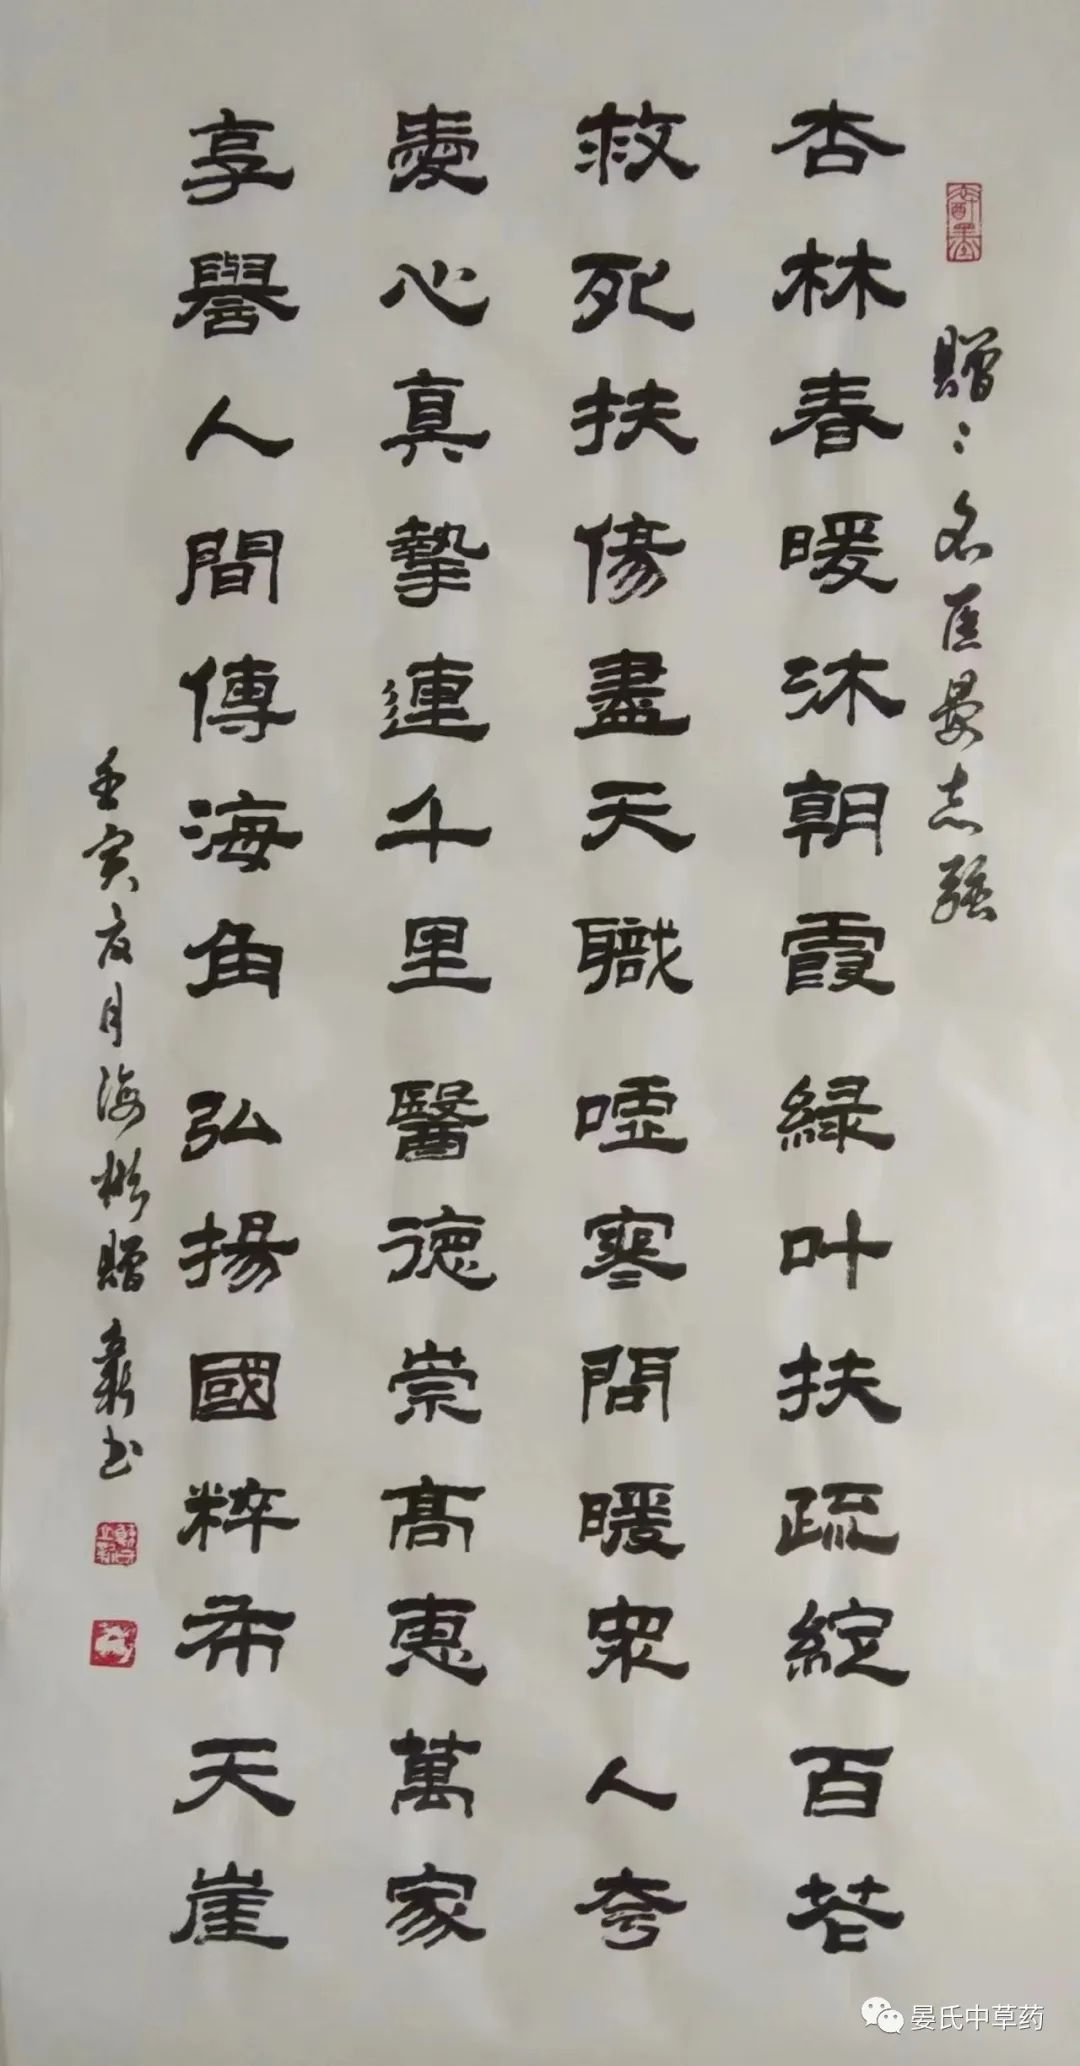 贈：名医晏志强
杏林春暖沐朝霞緑叶扶疏綻百花
救死扶傷盡天職嘘寒問暖眾人夸
愛心真摯連千里醫德崇高惠萬家
享譽人間傳海角弘揚國粹布天崖
壬寅夜月海彬贈 新书
晏氏中草药